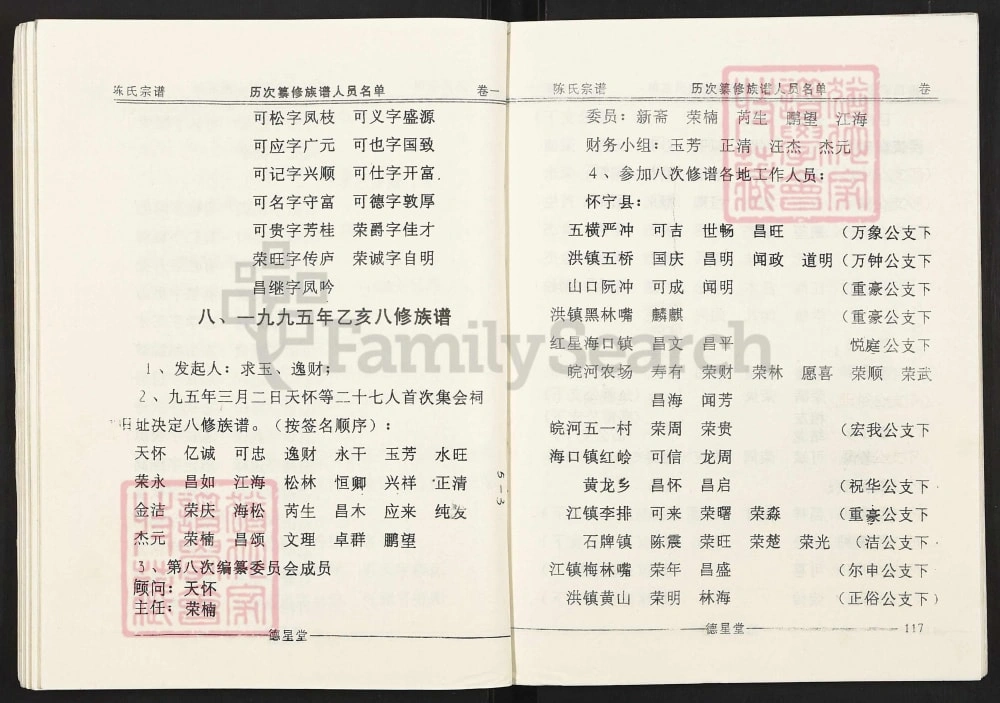 陈氏宗谱 历次纂修族谱人员名单 卷一
可松字凤枝 可义字盛源
可应字广元 可也字国致
可记字兴顺 可仕字开富
可名字守富 可德字敦厚
可贵字芳桂 荣爵字佳才
荣旺字传庐 荣诚字自明
昌继字凤吟
八、一九九五年乙亥八修族谱
1、发起人：求玉、逸财；
2、九五年三月二日天怀等二十七人首次集会祠
旧址决定八修族谱。（按签名顺序）：
天怀 亿诚 可忠 逸财 永干 玉芳 水旺
荣永 昌如 江海 松林 恒卿 兴祥 正清
金洁 荣庆 海松 芮生 昌木 应来 纯友
杰元 荣楠 昌颂 文理 卓群 鹏望
3、第八次编纂委员会成员
顾问：天怀
主任：荣楠
德星堂
5-3
陈氏宗谱 历次纂修族谱人员名单 卷
委员：新斋 荣楠 芮生 鹏望 江海
财务小组：玉芳 正清 汪杰 杰元
4、参加八次修谱各地工作人员：
怀宁县：
五横严冲 可吉 世畅 昌旺 （万象公支下
洪镇五桥 国庆 昌明 闻政 道明（万钟公支下
山口阮冲 可成 闻明 （重豪公支下
洪镇黑林嘴 麟麒 （重豪公支下
红星海口镇 昌文 昌平 悦庭公支下
皖河农场 寿有 荣财 荣林 愿喜 荣顺 荣武
昌海 闻芳
皖河五一村 荣周 荣贵 （宏我公支下
海口镇红岭 可信 龙周
黄龙乡 昌怀 昌启 （祝华公支下
江镇李排 可来 荣曙 荣淼 （重豪公支下
石牌镇 陈震 荣旺 荣楚 荣光 （文洁公支下
江镇梅林嘴 荣年 昌盛 （尔申公支下
洪镇黄山 荣明 林海 （正俗公支下）
德星堂 117
FamilySearch